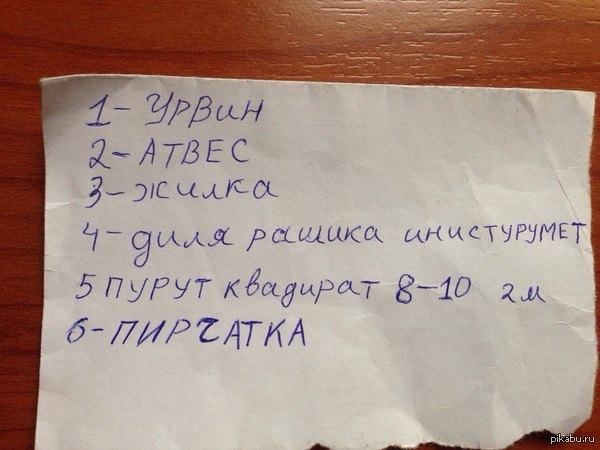 1-УРВИН
2-АТВЕС
3-ЖИЛКА
4-диля рашика инистурумет
5 ПУРУТ квадират 8-10 2м
6-ПИРЧАТКА
pikabu.ru